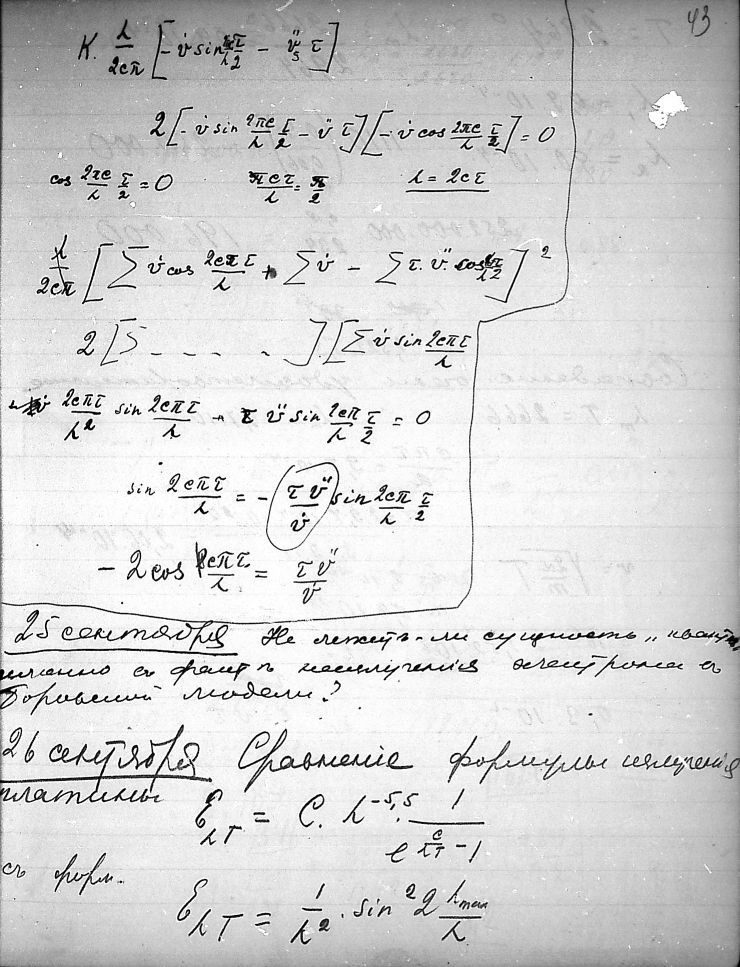 43
K. λ/2cπ [ - v̇ sin 2πc/λ τ/2 - v̈ τ ]
2 [ - v̇ sin 2πc/λ τ/2 - v̈ τ ] [ - v̇ cos 2πc/λ τ/2 ] = 0
cos 2πc/λ τ/2 = 0 πcτ/λ = π/2 λ = 2cτ
λ/2cπ [ Σ v̇ cos 2cπτ/λ + Σ v̇ - Σ τ. v̈. cos ]²
2 [ Σ - - - - ] . [ Σ v̇ sin 2cπτ/λ
v̇ 2cπτ/λ² sin 2cπτ/λ - τ v̈ sin 2cπ/λ τ/2 = 0
sin 2cπτ/λ = - τ v̈/v̇ sin 2cπ/λ τ/2
- 2 cos cπτ/λ = τ v̈/v̇
25 сентября Не лежитъ-ли сущность „квантъ
именно въ фактѣ неизлученія электрона въ
Боровской модели?
26 сентября Сравненіе формулы излученія
платины
ε λT = C. λ^-5,5 . 1/(e^(c/λT) - 1)
съ форм.
ε λT = 1/λ² . sin² 2 λmax/λ